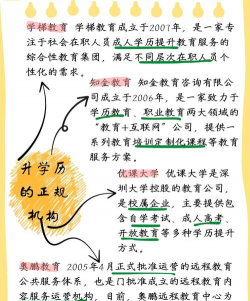 学梯教育 学梯教育成立于2007年，是一家专
注于社会在职人员成人学历提升教育服务的
综合性教育集团，满足不同层次在职人员个
性化的需求。
知金教育 知金教育咨询有限公
司成立于2006年，是一家致力于
学历教育、职业教育两大领域的
“教育+互联网”公司，提供一
系列教育培训定制化课程等教育
服务方案。
升学历
的正规
机构
优课大学 优课大学是深
圳大学控股的教育公司，
是校属企业，主要提供包
含自学考试、成人高考、
开放教育等多种学历提升
方式。
奥鹏教育 2005年4月正式批准运营的远程教育
公共服务体系，也是门批准成立的远程教育内
容服务运营机构，目前，奥鹏远程教育中心为